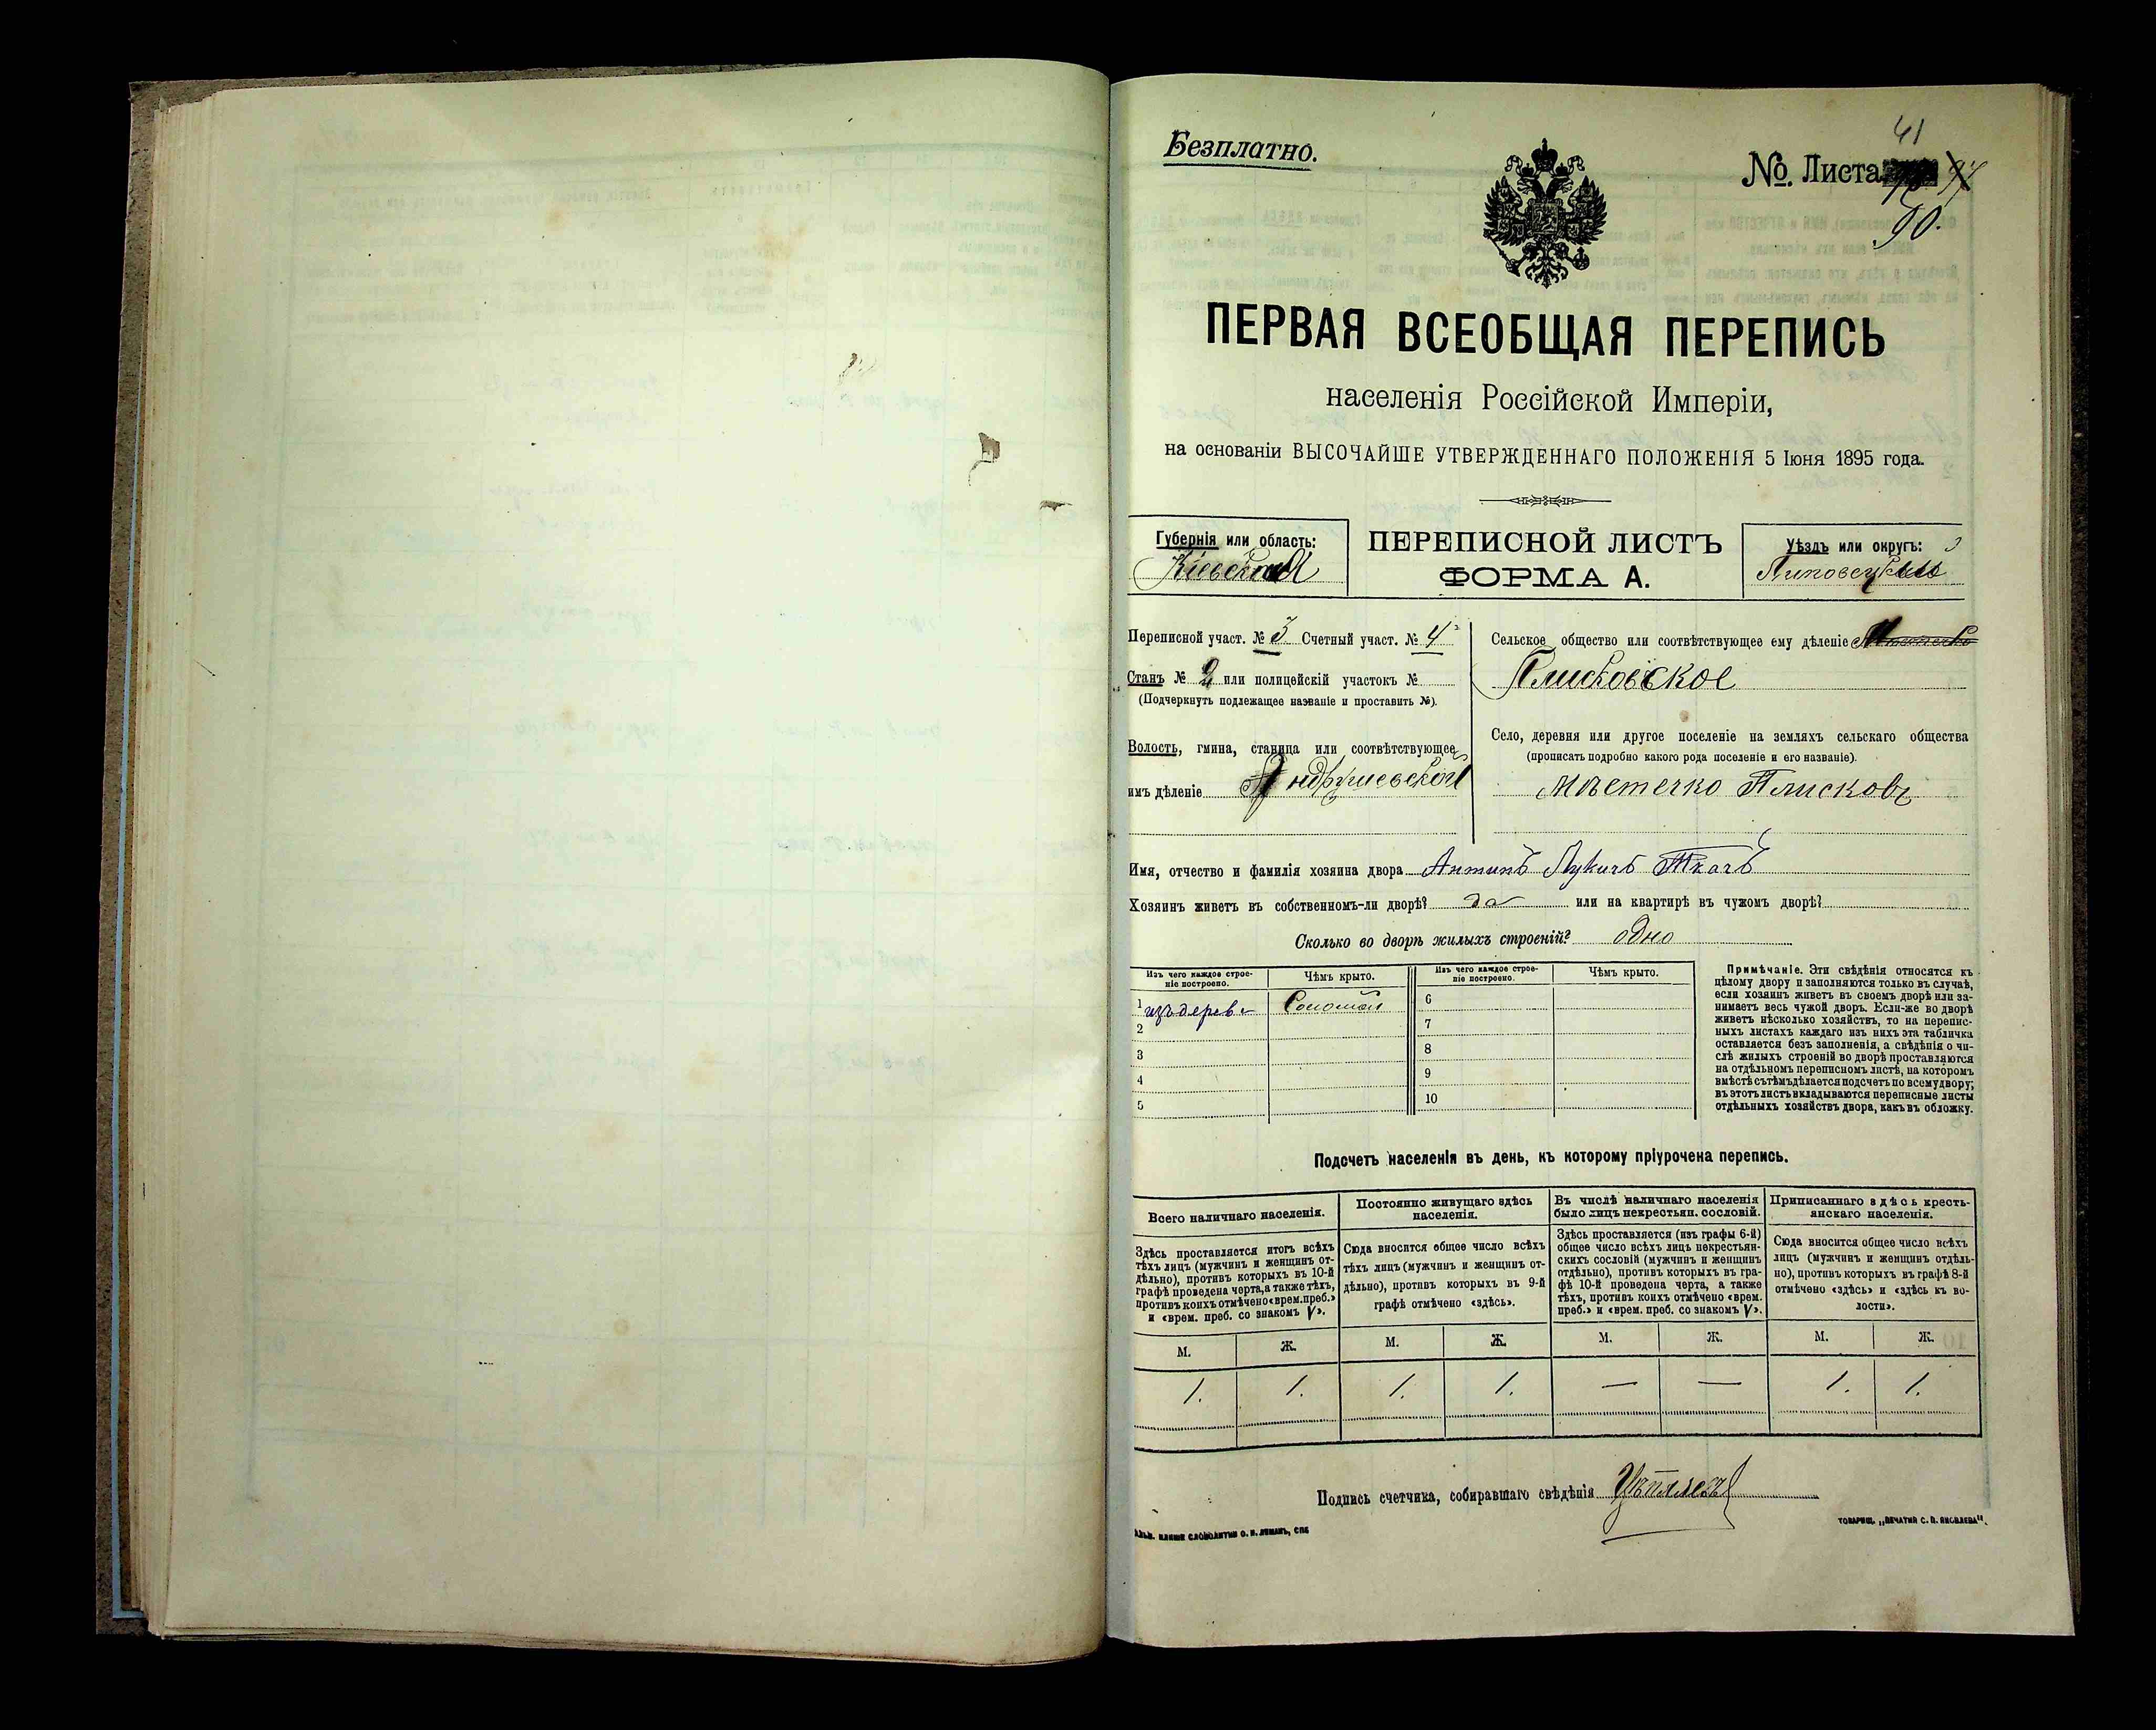 41
Безплатно.
№. Листа 94
90.
ПЕРВАЯ ВСЕОБЩАЯ ПЕРЕПИСЬ
населенія Россійской Имперіи,
на основаніи ВЫСОЧАЙШЕ УТВЕРЖДЕННАГО ПОЛОЖЕНІЯ 5 Іюня 1895 года.
Губернія или область:
Кіевская
ПЕРЕПИСНОЙ ЛИСТЪ
ФОРМА А.
Уѣздъ или округъ:
Липовецкій
Переписной участ. № 3 Счетный участ. № 4
Станъ № 2 или полицейскій участокъ №
(Подчеркнуть подлежащее названіе и проставить №).
Волость, гмина, станица или соотвѣтствующее
имъ дѣленіе Андрушевской
Сельское общество или соотвѣтствующее ему дѣленіе
Плисковское
Село, деревня или другое поселеніе на земляхъ сельскаго общества
(прописать подробно какого рода поселеніе и его названіе).
Мѣстечко Плисковъ
Имя, отчество и фамилія хозяина двора Антипъ Лукичъ Ткачъ
Хозяинъ живетъ въ собственномъ-ли дворѣ? да или на квартирѣ въ чужомъ дворѣ?
Сколько во дворѣ жилыхъ строеній? одно
Изъ чего каждое строе-
ніе построено.
Чѣмъ крыто.
Изъ чего каждое строе-
ніе построено.
Чѣмъ крыто.
1 изъ дерева Соломой 6
2 7
3 8
4 9
5 10
Примѣчаніе. Эти свѣдѣнія относятся къ
цѣлому двору и заполняются только въ случаѣ,
если хозяинъ живетъ въ своемъ дворѣ или за-
нимаетъ весь чужой дворъ. Если-же во дворѣ
живетъ нѣсколько хозяйствъ, то на перепис-
ныхъ листахъ каждаго изъ нихъ эта табличка
оставляется безъ заполненія, а свѣдѣнія о чи-
слѣ жилыхъ строеній во дворѣ проставляются
на отдѣльномъ переписномъ листѣ, на которомъ
вмѣстѣ съ тѣмъ дѣлается подсчетъ по всему двору;
въ этотъ листъ вкладываются переписные листы
отдѣльныхъ хозяйствъ двора, какъ въ обложку.
Подсчетъ населенія въ день, къ которому пріурочена перепись.
Всего наличнаго населенія.
Здѣсь проставляется итогъ всѣхъ
тѣхъ лицъ (мужчинъ и женщинъ от-
дѣльно), противъ которыхъ въ 10-й
графѣ проведена черта, а также тѣхъ,
противъ коихъ отмѣчено «врем. преб.»
и «врем. преб. со знакомъ V».
Постоянно живущаго здѣсь
населенія.
Сюда вносится общее число всѣхъ
тѣхъ лицъ (мужчинъ и женщинъ от-
дѣльно), противъ которыхъ въ 9-й
графѣ отмѣчено «здѣсь».
Въ числѣ наличнаго населенія
было лицъ некрестьян. сословій.
Здѣсь проставляется (изъ графы 6-й)
общее число всѣхъ лицъ некрестьян-
скихъ сословій (мужчинъ и женщинъ
отдѣльно), противъ которыхъ въ гра-
фѣ 10-й проведена черта, а также
тѣхъ, противъ коихъ отмѣчено «врем.
преб.» и «врем. преб. со знакомъ V».
Приписаннаго здѣсь кресть-
янскаго населенія.
Сюда вносится общее число всѣхъ
лицъ (мужчинъ и женщинъ отдѣль-
но), противъ которыхъ въ графѣ 8-й
отмѣчено «здѣсь» и «здѣсь къ во-
лости».
М. Ж. М. Ж. М. Ж. М. Ж.
1. 1. 1. 1. — — 1. 1.
Подпись счетчика, собиравшаго свѣдѣнія
ТОВАРИЩ. „ПЕЧАТНЯ С. П. ЯКОВЛЕВА“.